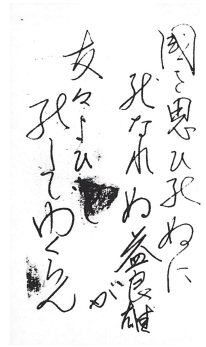 國を思ひ死ぬに
死なれぬ益良雄が
友々よひつ
死してゆくらん